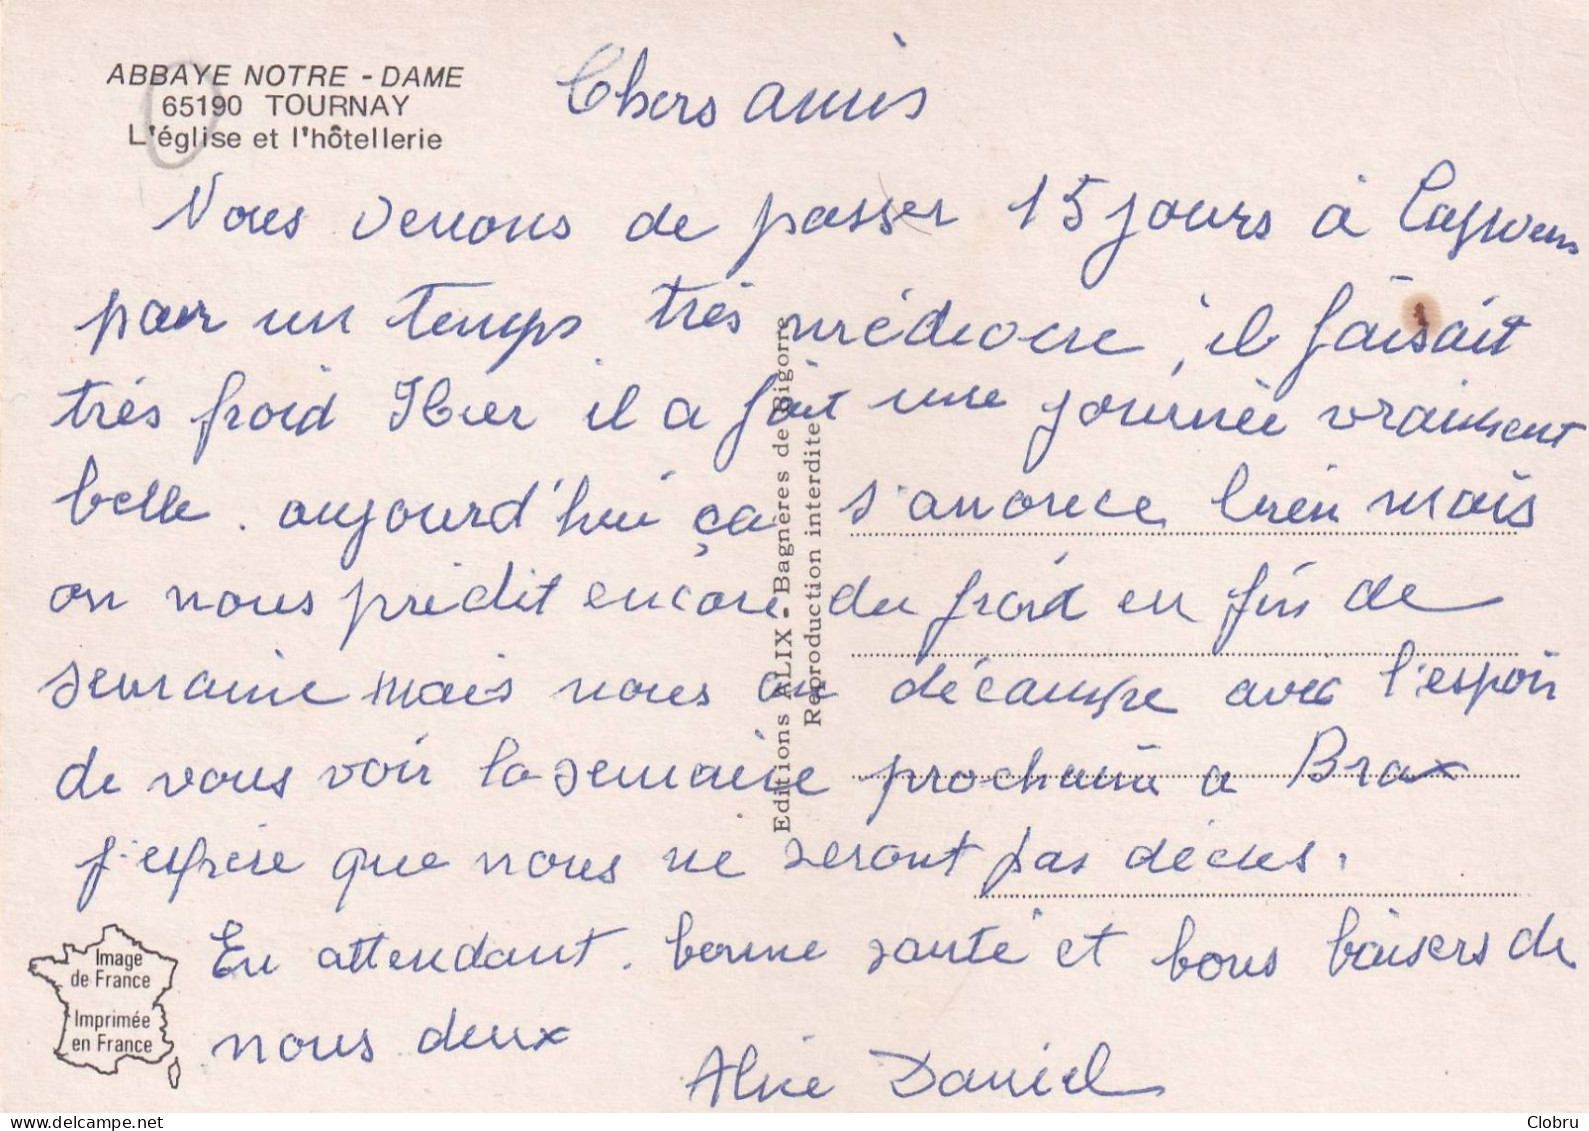 ABBAYE NOTRE - DAME
65190 TOURNAY
L'église et l'hôtellerie
Chers amis
Nous venons de passer 15 jours à
par un temps très médiocre, il faisait
très froid Hier il a fait une journée vraiment
belle. aujourd'hui ça s'anonce bien mais
on nous prédit encore du froid en fin de
semaine mais nous on décampe avec l'espoir
de vous voir la semaine prochaine a Brax
j'espère que nous ne seront pas décus.
En attendant. bonne santé et bons baisers de
nous deux
Alice Daniel
Editions ALIX - Bagnères de Bigorre
Reproduction interdite
Image
de France
Imprimée
en France
delcampe.net
Clobru